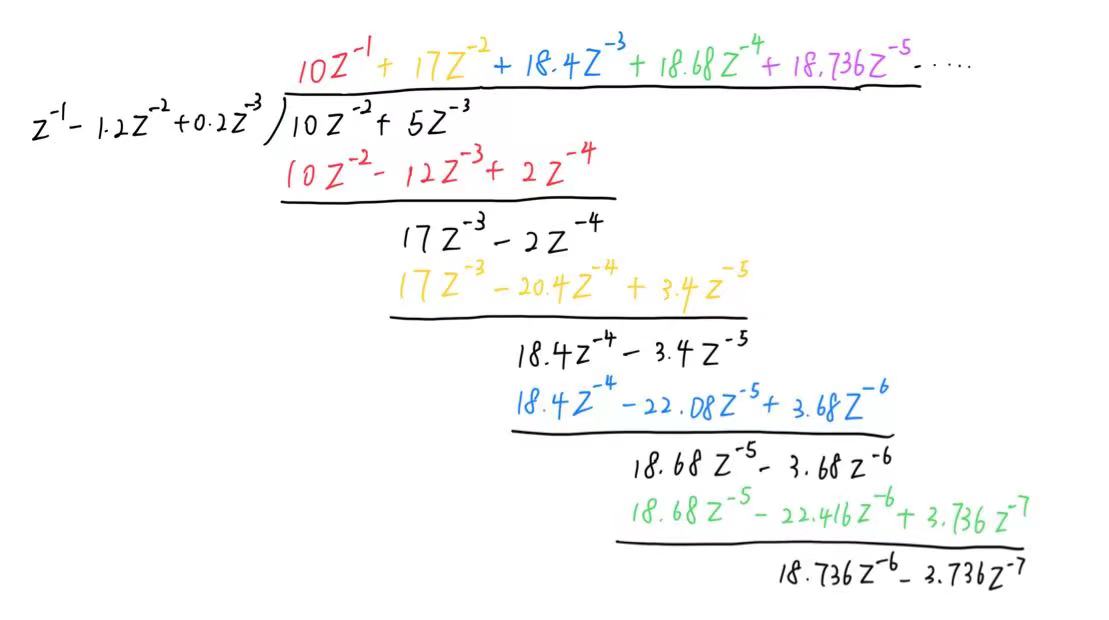 10Z⁻¹ + 17Z⁻² + 18.4Z⁻³ + 18.68Z⁻⁴ + 18.736Z⁻⁵ ......
Z⁻¹ - 1.2Z⁻² + 0.2Z⁻³ ) 10Z⁻² + 5Z⁻³
10Z⁻² - 12Z⁻³ + 2Z⁻⁴
17Z⁻³ - 2Z⁻⁴
17Z⁻³ - 20.4Z⁻⁴ + 3.4Z⁻⁵
18.4Z⁻⁴ - 3.4Z⁻⁵
18.4Z⁻⁴ - 22.08Z⁻⁵ + 3.68Z⁻⁶
18.68Z⁻⁵ - 3.68Z⁻⁶
18.68Z⁻⁵ - 22.416Z⁻⁶ + 3.736Z⁻⁷
18.736Z⁻⁶ - 3.736Z⁻⁷